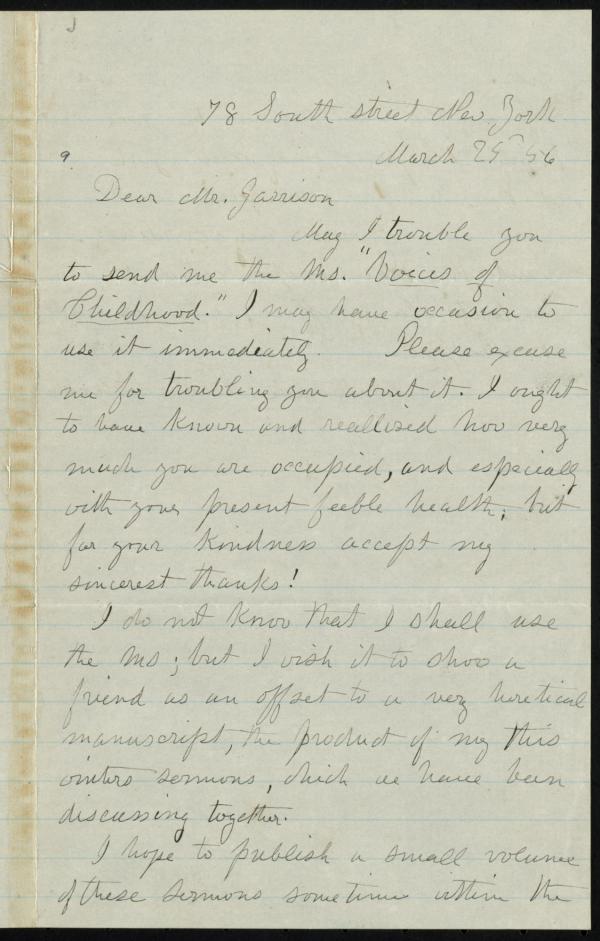 78 South street New York
March 25th 56
9
Dear Mr. Garrison
May I trouble you
to send me the Ms. "Voices of
Childhood." I may have occasion to
use it immediately. Please excuse
me for troubling you about it. I ought
to have known and reallized how very
much you are occupied, and especially
with your present feeble health; but
for your kindness accept my
sincerest thanks!
I do not know that I shall use
the Ms; but I wish it to show a
friend as an offset to a very heretical
manuscript, the product of my this
winters sermons, which we have been
discussing together.
I hope to publish a small volume
of these sermons sometime within the